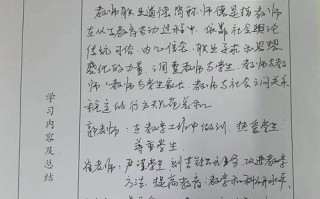 教师职业道德简称师德是指教师
在从事教育劳动过程中，依靠社会舆论
传统习俗，内心信念，职业
的力量，调整教师与学生、教师与教
师、教师与学生家长、教师与社会之间关系
行为规范总和
郭老师：在教学工作中做到，热爱学生
尊重学生
老师：严谨学，刻苦钻，改进教学
方法，提高教育：教学和科研水平
学习内容及总结